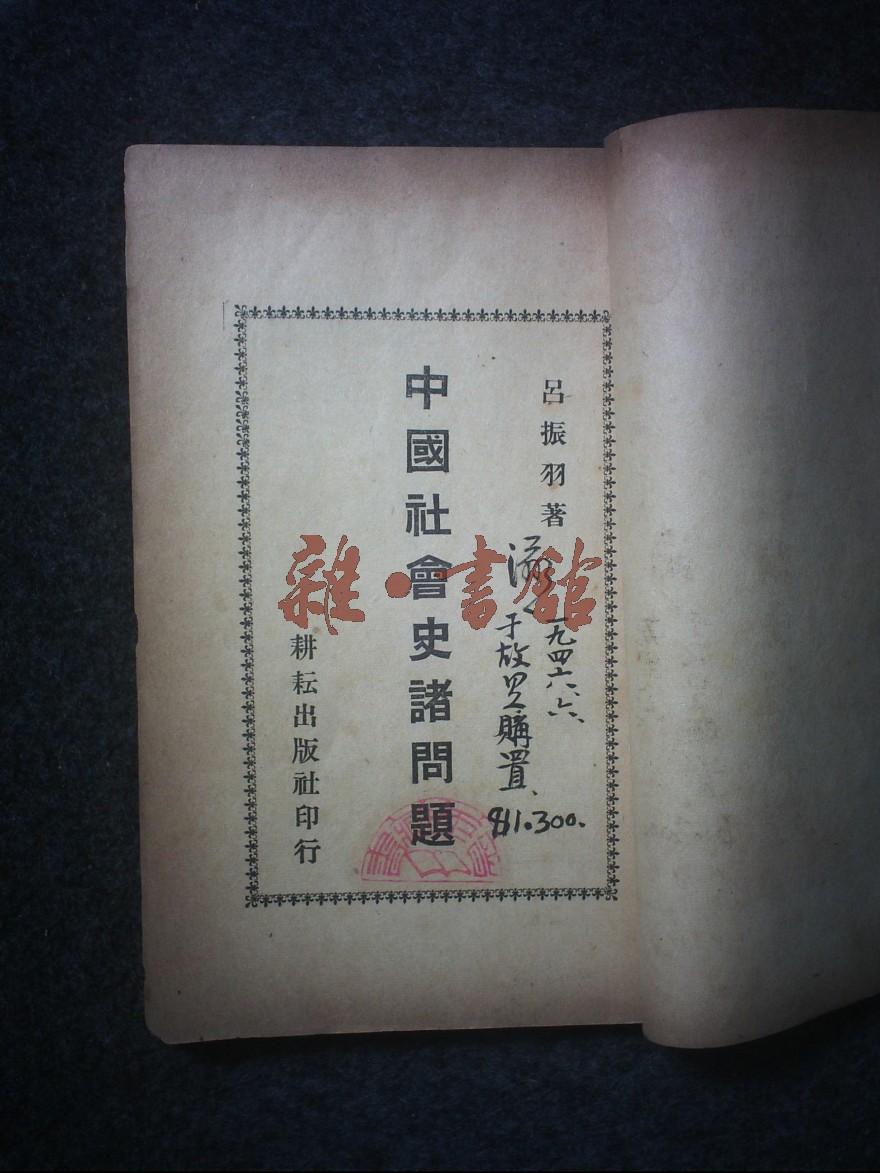 呂振羽著
中國社會史諸問題
耕耘出版社印行
一九四六、六、
于故里購置、
$1.300.
雜·書館